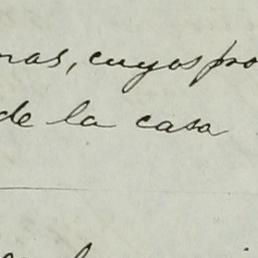 nas, cuyos po
de la casa